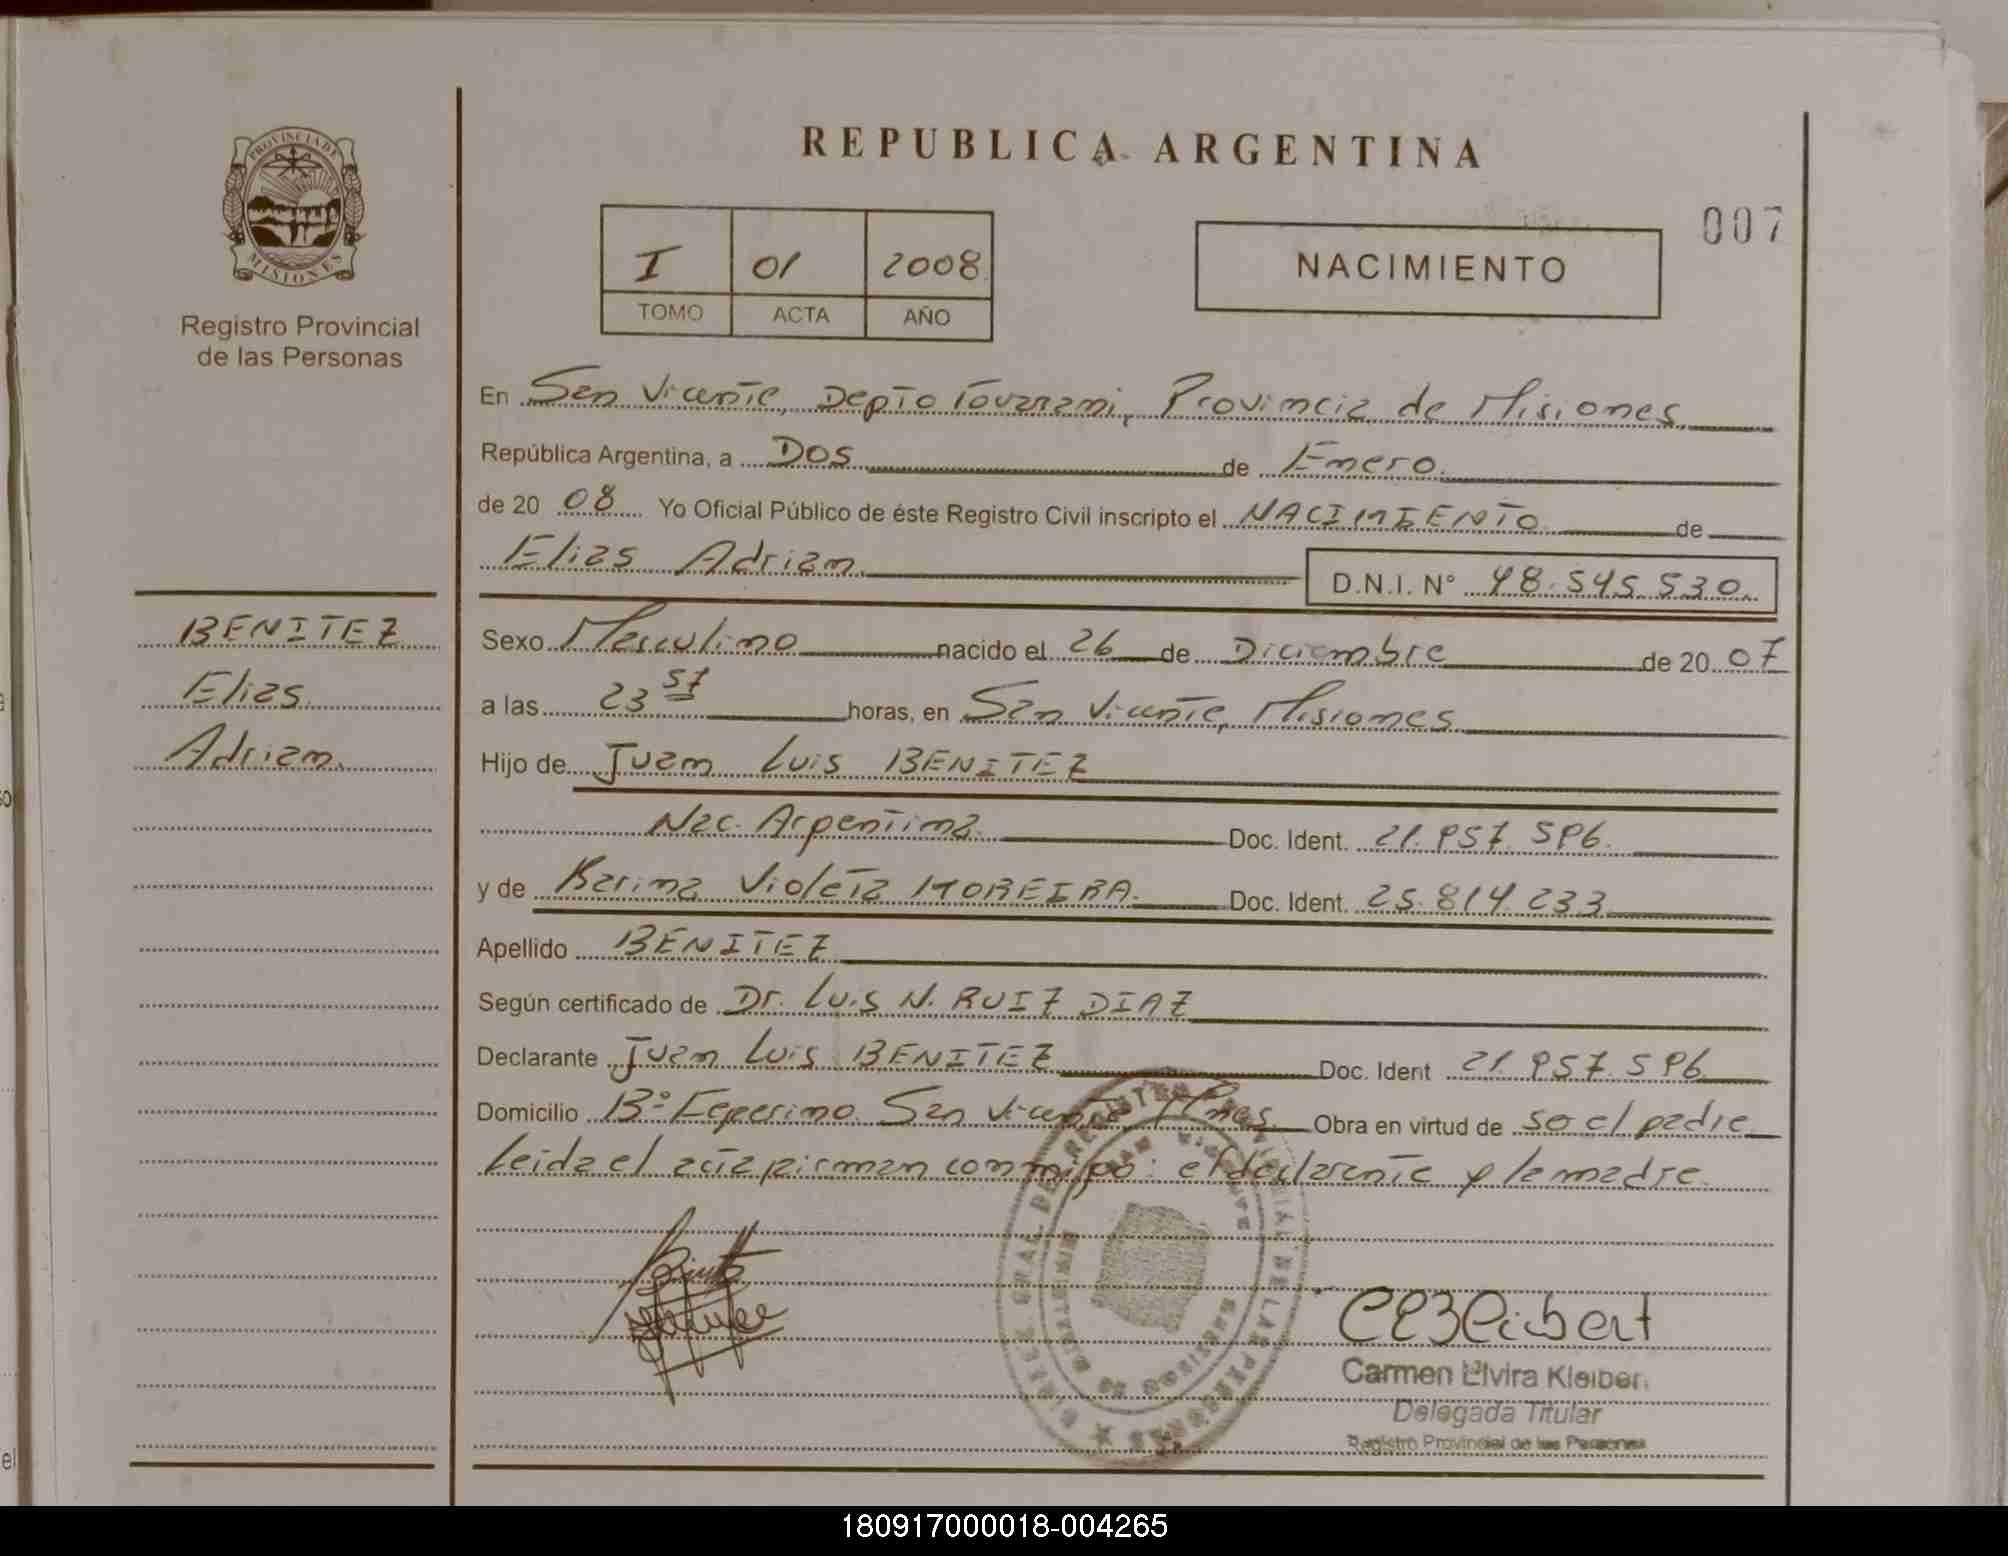 REPUBLICA ARGENTINA
007
PROVINCIA DE MISIONES
Registro Provincial
de las Personas
I 01 2008
TOMO ACTA AÑO
NACIMIENTO
En San Vicente, Depto Guarani, Provincia de Misiones
República Argentina, a Dos de Enero
de 20 08 Yo Oficial Público de éste Registro Civil inscripto el NACIMIENTO de
Elias Adrian
D.N.I. Nº 48.545.530
BENITEZ
Elias
Adrian
Sexo Masculino nacido el 26 de Diciembre de 20 07
a las 23 57 horas, en San Vicente, Misiones
Hijo de Juan Luis BENITEZ
Nac. Argentina Doc. Ident. 21.957.596
y de Karina Violeta MOREIRA. Doc. Ident. 25.814.233
Apellido BENITEZ
Según certificado de Dr. Luis N. RUIZ DIAZ
Declarante Juan Luis BENITEZ Doc. Ident 21.957.596
Domicilio Bº San Vicente, Mnes. Obra en virtud de so el padre
Leida el acta firman conmigo: el declarante y la madre.
Carmen Elvira Kleibert
Delegada Titular
Registro Provincial de las Personas
180917000018-004265